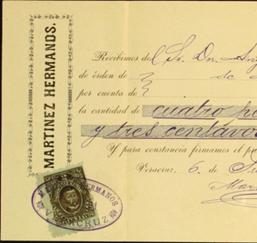 MARTINEZ HERMANOS.
Recibimos del Sr. Dn.
de órden de
por cuenta de
la cantidad de cuatro
y tres centavos
Y para constancia firmamos el
Veracruz, 6 de
HERMANOS
VERACRUZ